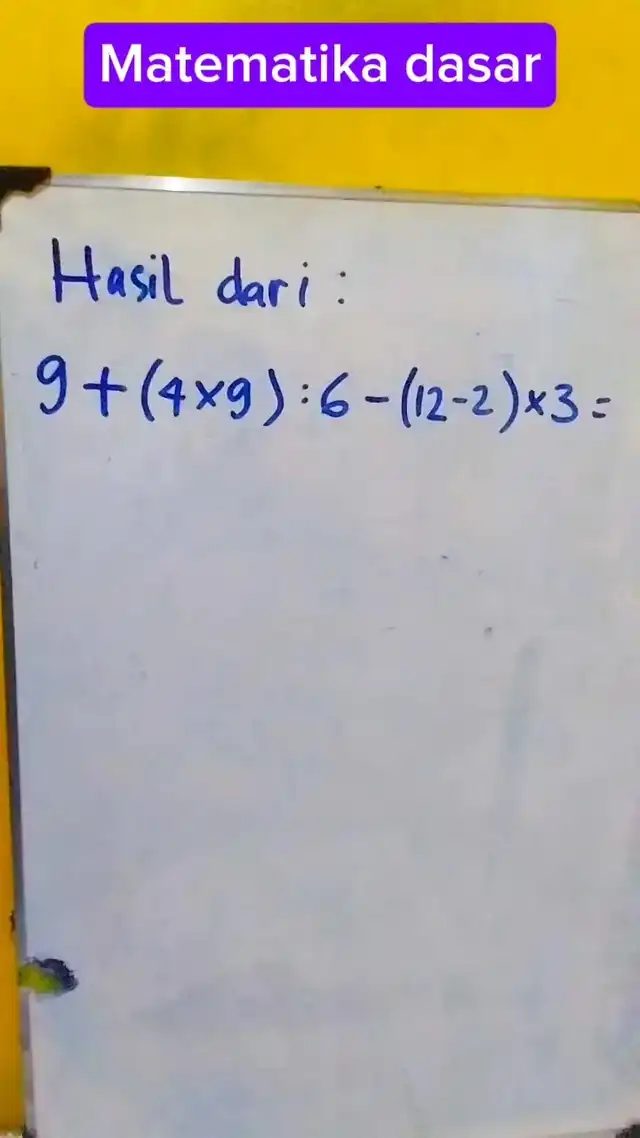 Matematika dasar
Hasil dari :
9 + (4 × 9) : 6 - (12 - 2) × 3 =